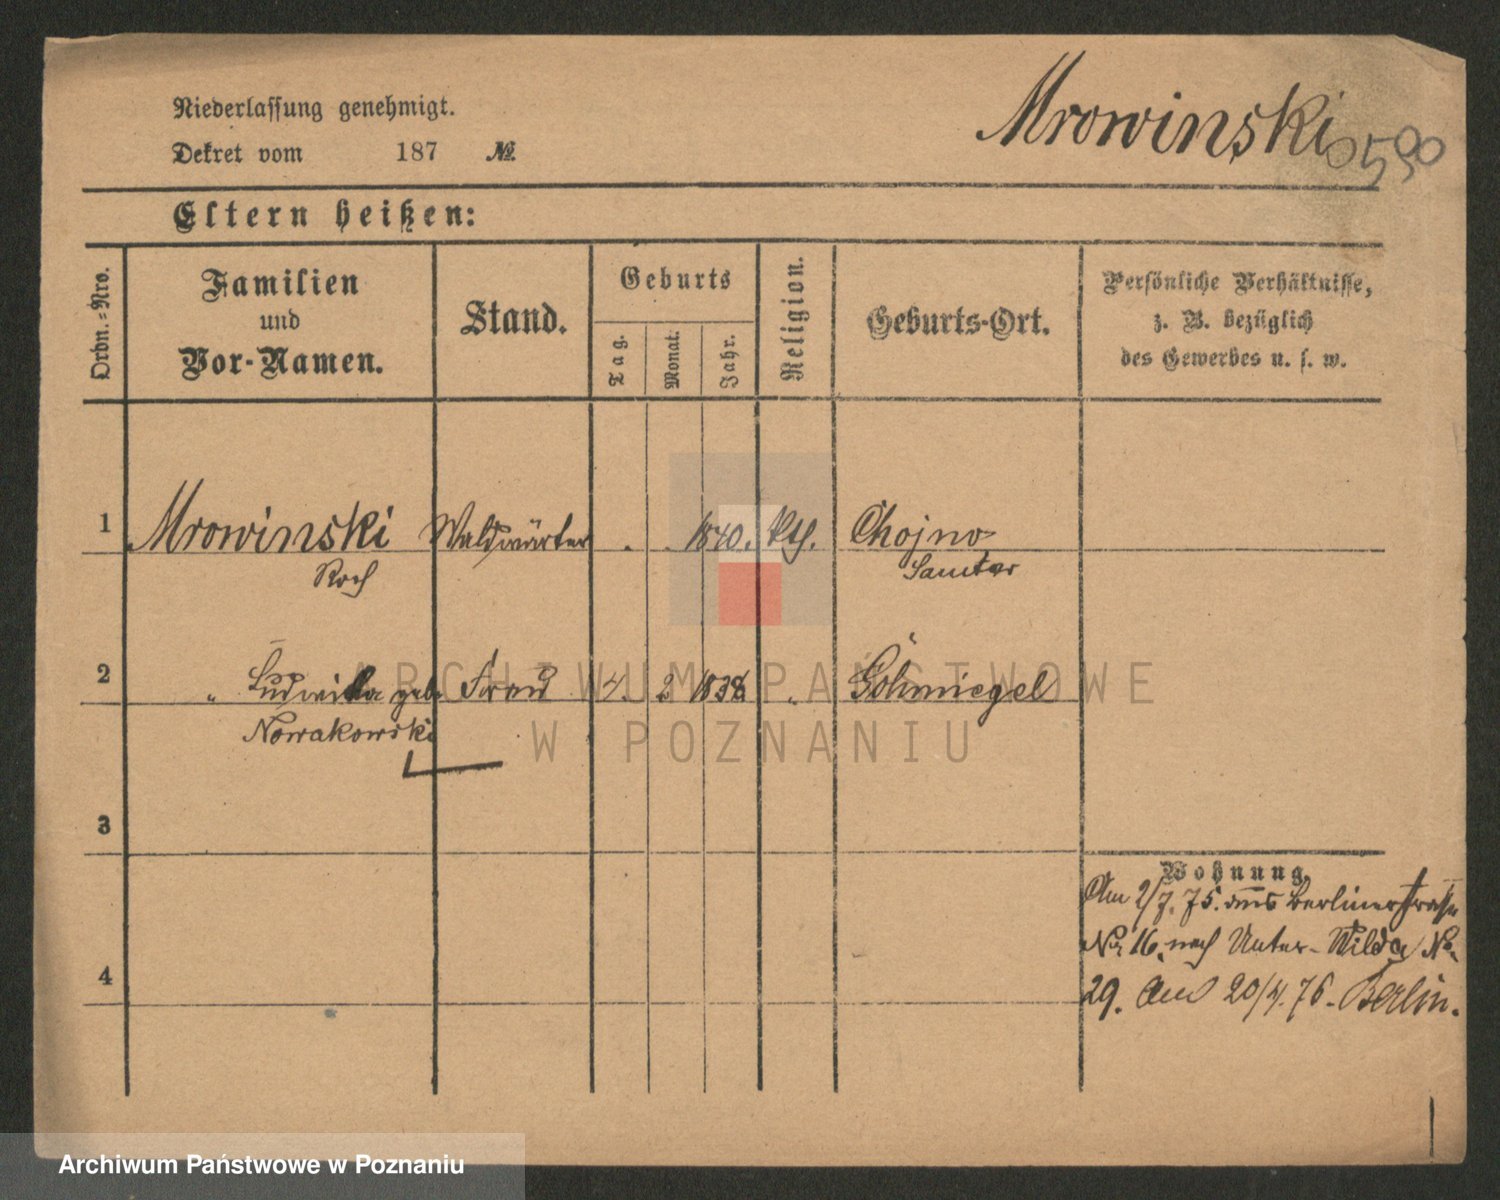 Mrowinski
590
Niederlassung genehmigt.
Dekret vom 187 №
Eltern heißen:
Ordn.-Nro.
Familien
und
Vor-Namen.
Stand.
Geburts
Tag.
Monat.
Jahr.
Religion.
Geburts-Ort.
Persönliche Verhältnisse,
z. B. bezüglich
des Gewerbes u. s. w.
1 Mrowinski Waldwärter 1840. kth. Chojno
Roch Samter
2 " Ludwika geb. Frau 4. 2 1838 " Schmiegel
Nowakowski
3
4
Wohnung.
Am 2/7. 75. aus Berlinerstrasse
No 16. nach Unter-Wilda No
29. 20/4. 76. Berlin.
ARCHIWUM PAŃSTWOWE
W POZNANIU
Archiwum Państwowe w Poznaniu